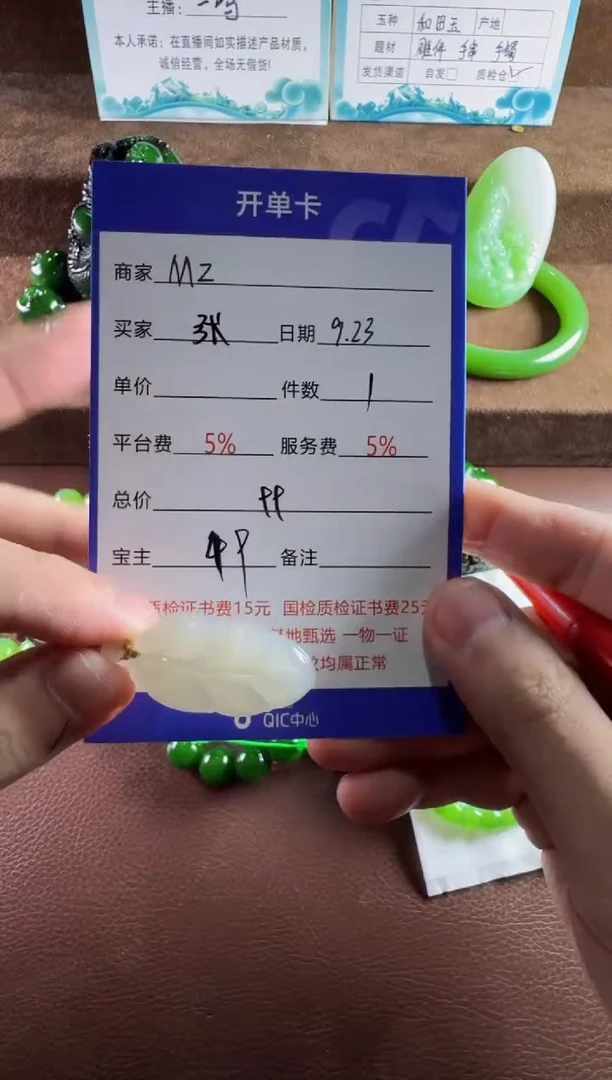 主播:
本人承诺:在直播间如实描述产品材质,
诚信经营,全场无假货!
玉种 和田玉 产地
题材 雕件 手串 手镯
发货渠道 自发□ 质检仓✓
开单卡
商家 MZ
买家 张 日期 9.23
单价 件数 1
平台费 5% 服务费 5%
总价 99
宝主 备注
质检证书费15元 国检质检证书费25元
地甄选 一物一证
均属正常
QIC中心